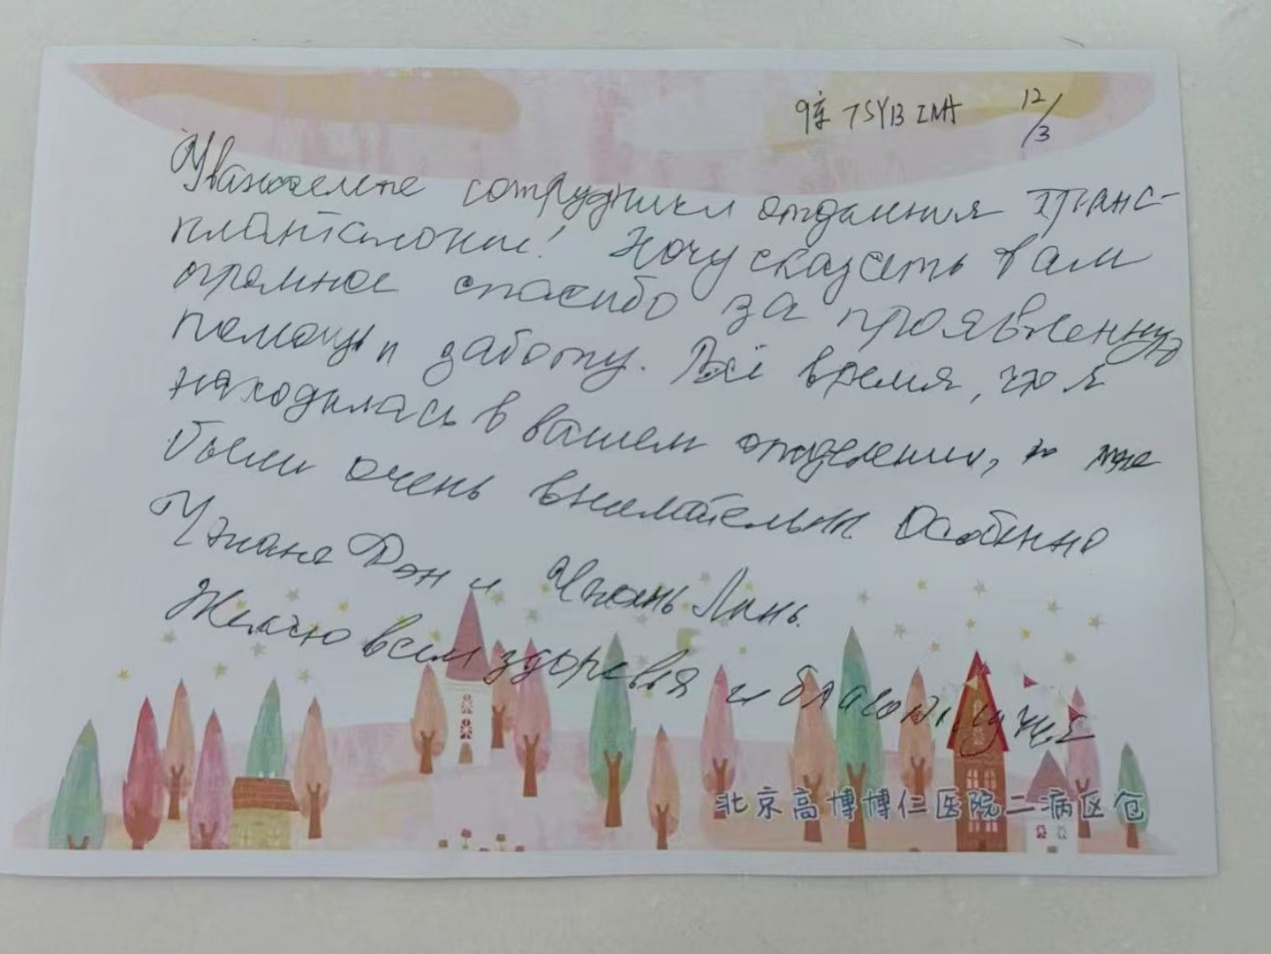 9床 TSYB IMA 12/3
Уважаемые сотрудники отделения транс-
плантологии! Хочу сказать вам
огромное спасибо за проявленную
помощь и заботу. Всё время, что я
находилась в вашем отделении, ко мне
были очень внимательны Особенно
Дэн и Чжань Линь.
Желаю всем здоровья и благополучия
北京高博博仁医院二病区仓